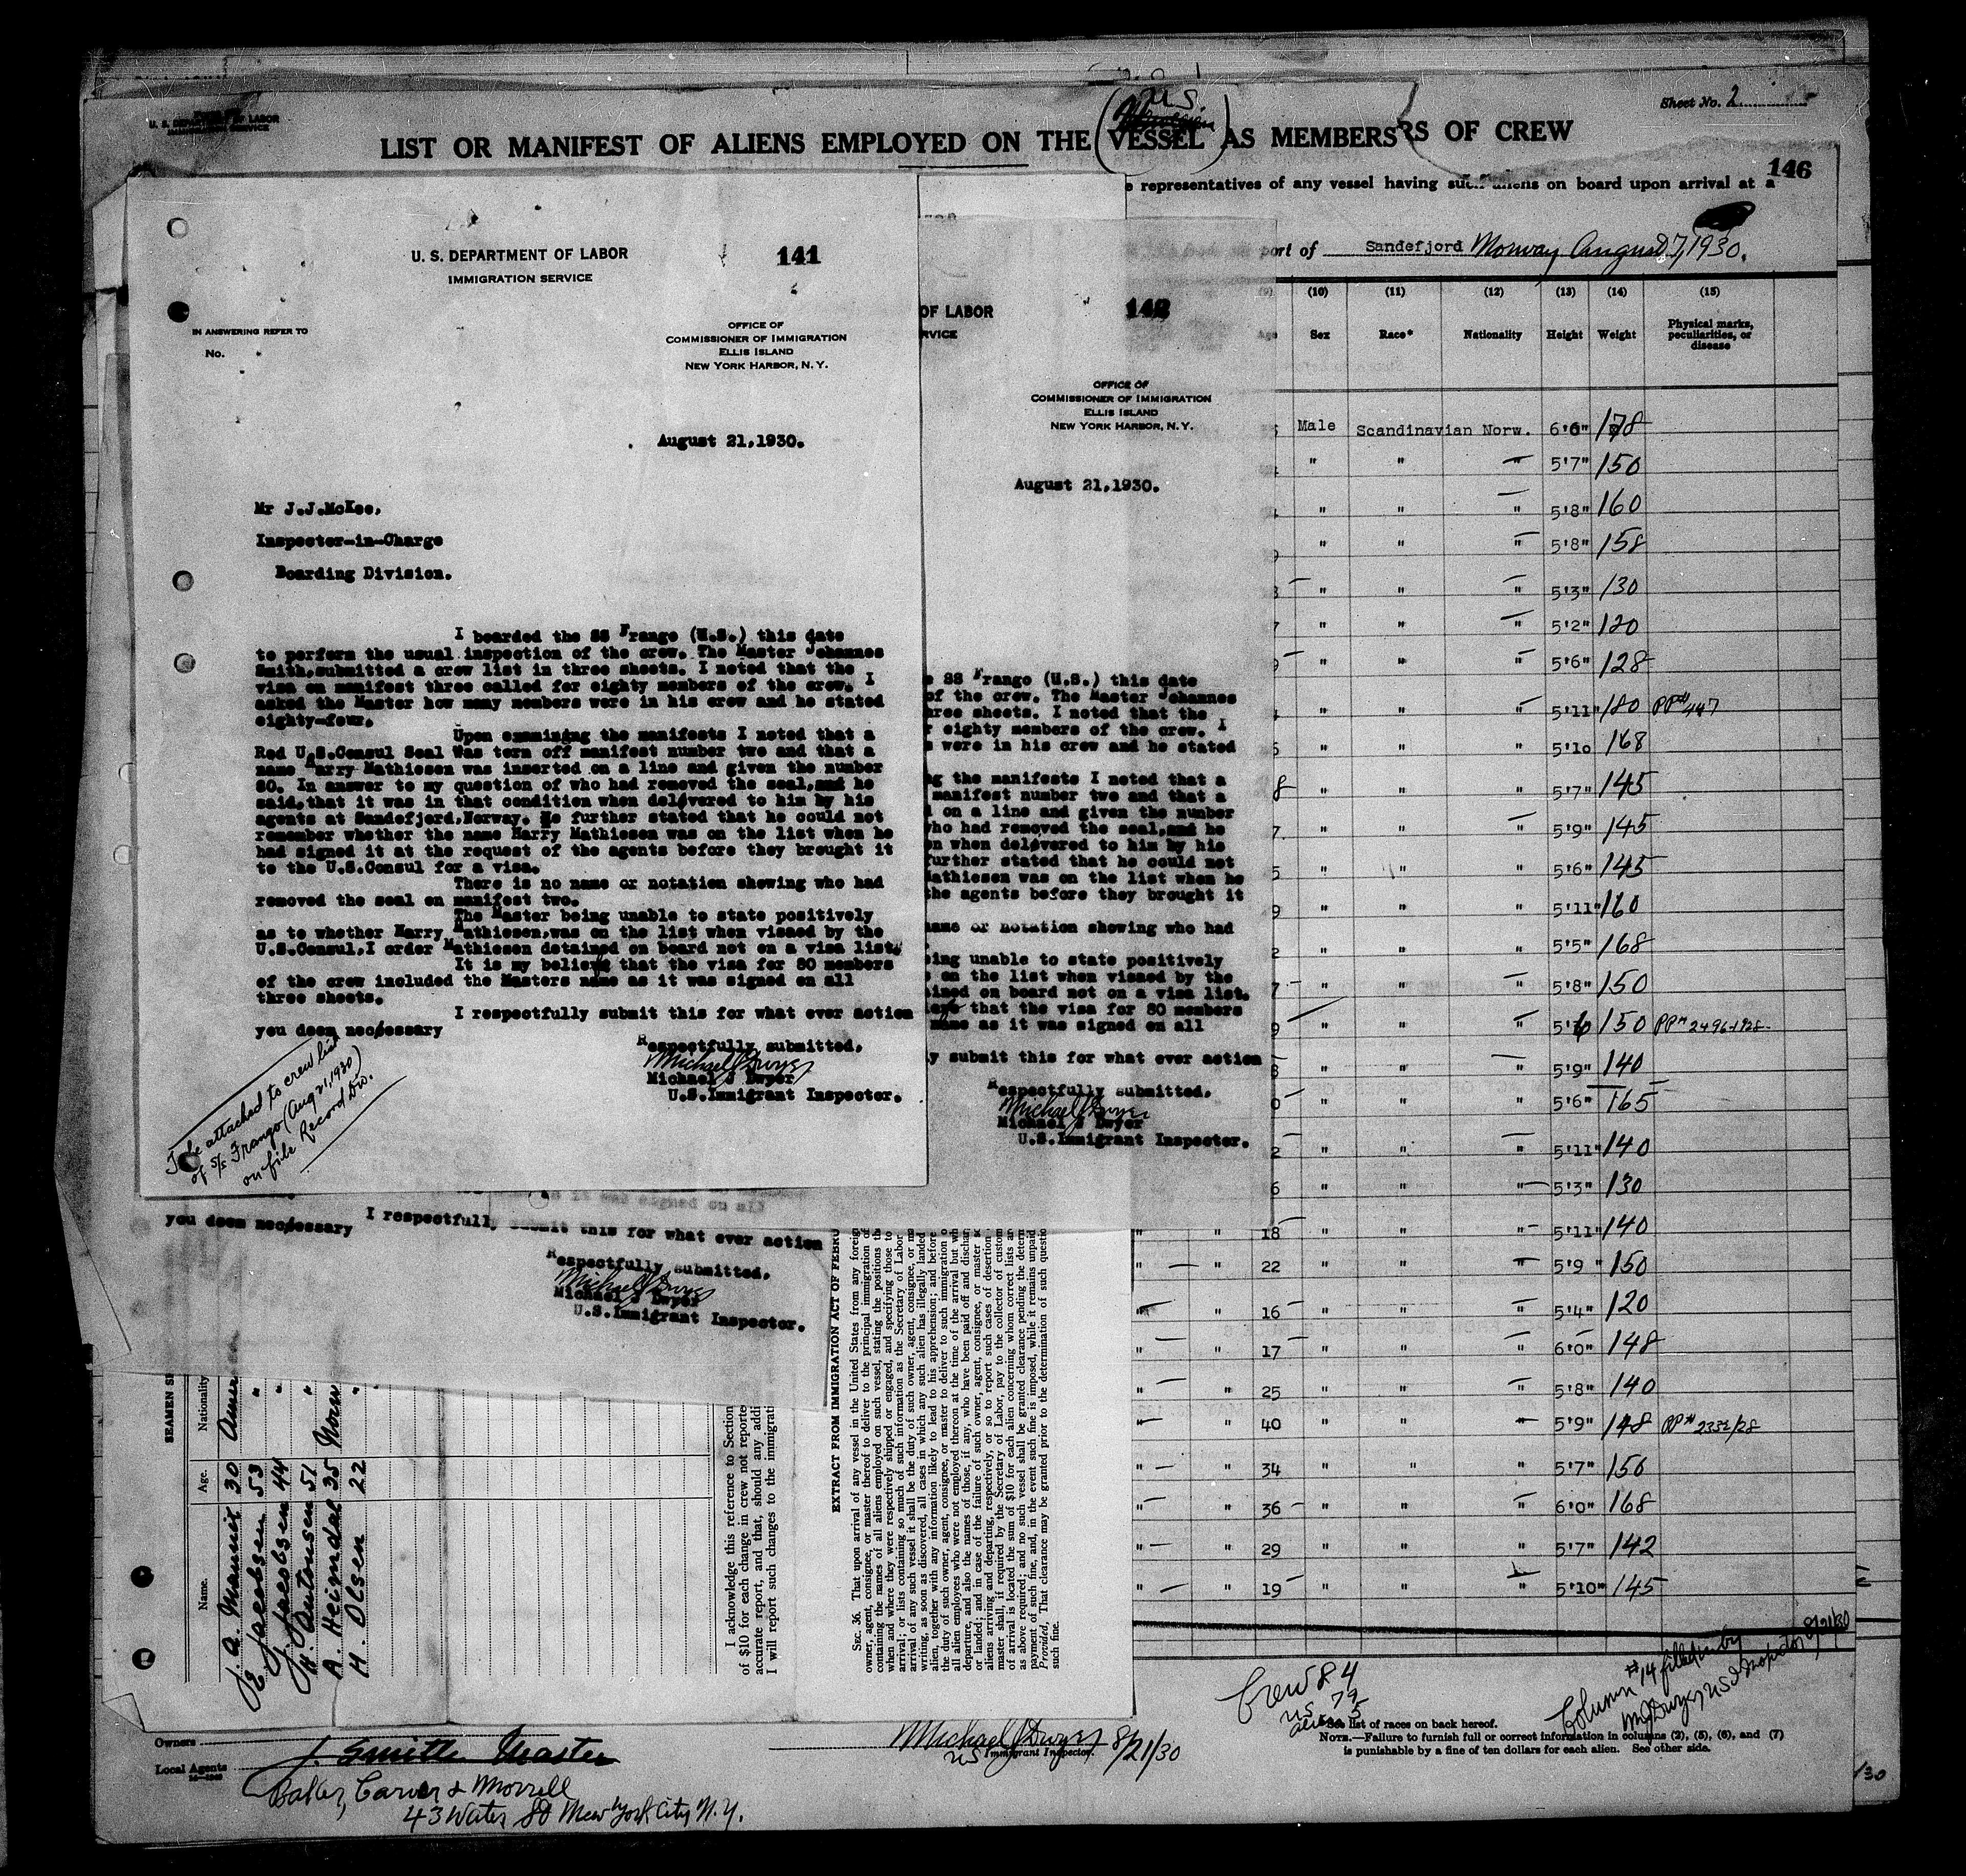 U. S. DEPARTMENT OF LABOR
IMMIGRATION SERVICE
Sheet No. 2
U.S.
LIST OR MANIFEST OF ALIENS EMPLOYED ON THE VESSEL AS MEMBERS RS OF CREW
146
e representatives of any vessel having such aliens on board upon arrival at a
port of Sandefjord Norway August 7, 1930.
U. S. DEPARTMENT OF LABOR
IMMIGRATION SERVICE
141
IN ANSWERING REFER TO
No.
OFFICE OF
COMMISSIONER OF IMMIGRATION
ELLIS ISLAND
NEW YORK HARBOR, N. Y.
August 21,1930.
Mr J.J.McKee,
Inspector-in-Charge
Boarding Division.
I boarded the SS Frango (U.S.) this date
to perform the usual inspection of the crew. The Master Johannes
Smith,submitted a crew list in three sheets. I noted that the
visa on manifest three called for eighty members of the crew. I
asked the Master how many members were in his crew and he stated
eighty-four.
Upon examining the manifests I noted that a
Red U.S.Consul Seal Was torn off manifest number two and that a
name Harry Mathiesen was inserted on a line and given the number
80. In answer to my question of who had removed the seal,and he
said,that it was in that condition when delevered to him by his
agents at Sandefjord,Norway. He further stated that he could not
remember whether the name Harry Mathiesen was on the list when he
had signed it at the request of the agents before they brought it
to the U.S.Consul for a visa.
There is no name or notation showing who had
removed the seal on manifest two.
The Master being unable to state positively
as to whether Harry Mathiesen,was on the list when visaed by the
U.S.Consul,I order Mathiesen detained on board not on a visa list.
It is my believe that the visa for 80 members
of the crew included the Masters name as it was signed on all
three sheets.
I respectfully submit this for what ever action
you deem necessary
Respectfully submitted,
Michael J Dwyer
Michael J Dwyer
U.S.Immigrant Inspector.
To be attached to crew list
of S/S Frango (Aug 21, 1930)
on file Record Div.
OF LABOR
RVICE
142
OFFICE OF
COMMISSIONER OF IMMIGRATION
ELLIS ISLAND
NEW YORK HARBOR, N. Y.
August 21,1930.
e SS Frango (U.S.) this date
of the crew. The Master Johannes
hree sheets. I noted that the
r eighty members of the crew. I
s were in his crew and he stated
ng the manifests I noted that a
manifest number two and that a
d on a line and given the number
who had removed the seal,and he
on when delevered to him by his
further stated that he could not
Mathiesen was on the list when he
the agents before they brought it
name or notation showing who had
eing unable to state positively
s on the list when visaed by the
ained on board not on a visa list.
that the visa for 80 members
name as it was signed on all
ly submit this for what ever action
Respectfully submitted,
Michael J Dwyer
Michael J Dwyer
U.S.Immigrant Inspector.
(10) (11) (12) (13) (14) (15)
Age Sex Race* Nationality Height Weight Physical marks, peculiarities, or disease
Male Scandinavian Norw. 6'0" 178
" " " 5'7" 150
" " " 5'8" 160
" " " 5'8" 158
" " " 5'3" 130
" " " 5'2" 120
" " " 5'6" 128
" " " 5'11" 180 PP# 447
" " " 5'10 168
8 " " " 5'7" 145
7. " " " 5'9" 145
5 " " " 5'6" 145
9 " " " 5'11" 160
2 " " " 5'5" 168
7 " " " 5'8" 150
9 " " " 5'6 150 PP# 2496-1928-
" " " 5'9" 140
0 " " " 5'6" 165
2 " " " 5'11" 140
6 " " " 5'3" 130
" " 18 " " " 5'11" 140
" " 22 " " " 5'9 " 150
" " 16 " " " 5'4" 120
" " 17 " " " 6'0" 148
" " 25 " " " 5'8" 140
" " 40 " " " 5'9" 148 PP# 2332/28
" " 34 " " " 5'7" 150
" " 36 " " " 6'0" 168
" " 29 " " " 5'7" 142
" " 19 " " " 5'10" 145
you deem necessary I respectfully submit this for what ever action
Respectfully submitted,
Michael J Dwyer
Michael J Dwyer
U.S.Immigrant Inspector.
SEAMEN
Name. Age. Nationality
30 Amer
E. Jacobsen 53 "
J. Jacobsen 44 "
H. Antonsen 51 "
A. Heimdal 35 Norw
H. Olsen 22 "
I acknowledge this reference to Section
of $10 for each change in crew not reporte
accurate report, and that, should any addi
I will report such changes to the immigrati
EXTRACT FROM IMMIGRATION ACT OF FEBRU
SEC. 36. That upon arrival of any vessel in the United States from any foreig
owner, agent, consignee, or master thereof to deliver to the principal immigration of
containing the names of all aliens employed on such vessel, stating the positions th
when and where they were respectively shipped or engaged, and specifying those to
arrival; or lists containing so much of such information as the Secretary of Labor
arrival of any such vessel it shall be the duty of such owner, agent, consignee, or m
writing, as soon as discovered, all cases in which any such alien has illegally landed
alien, together with any information likely to lead to his apprehension; and before
the duty of such owner, agent, consignee, or master to deliver to such immigration o
all alien employees who were not employed thereon at the time of the arrival but wh
departure, and also the names of those, if any, who have been paid off and dischar
or landed; and in case of the failure of such owner, agent, consignee, or master so
aliens arriving and departing, respectively, or so to report such cases of desertion
master shall, if required by the Secretary of Labor, pay to the collector of custom
of arrival is located the sum of $10 for each alien concerning whom correct lists ar
as above required; and no such vessel shall be granted clearance pending the determ
payment of such fine, and, in the event such fine is imposed, while it remains unpaid
Provided, That clearance may be granted prior to the determination of such questio
such fine.
Crew 84
US 79
aliens 5
Column #14 filled in by
M J Dwyer US I Inspector 8/21/30
*See list of races on back hereof.
NOTE.—Failure to furnish full or correct information in columns (2), (5), (6), and (7)
is punishable by a fine of ten dollars for each alien. See other side.
Owners
J. Smith Master
Michael J Dwyer 8/21/30
US Immigrant Inspector.
Local Agents
Baker, Carver & Morrell
43 Water St New York City N.Y.
/30